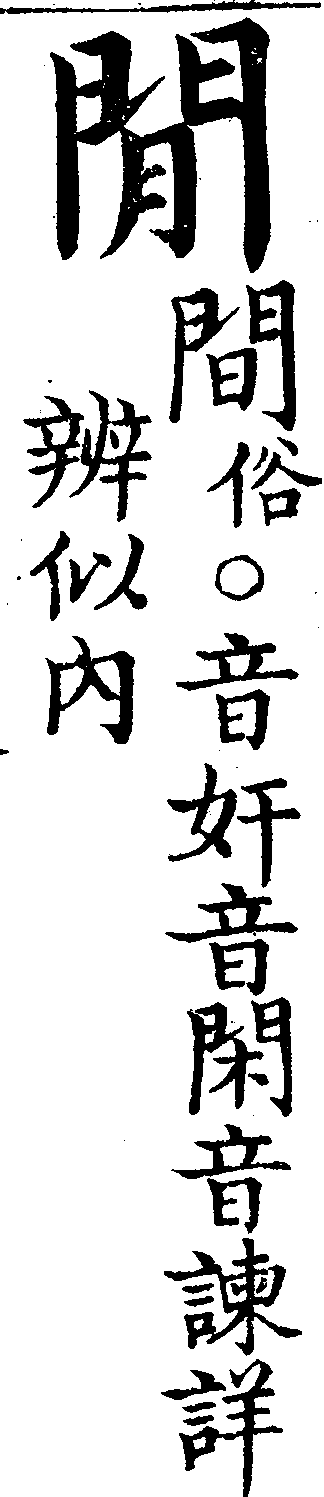 閒
間俗○音奸音閑音諫詳
辨似內